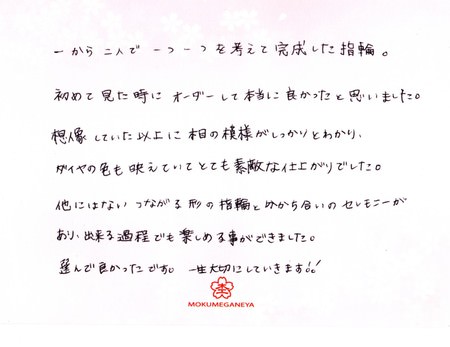 一から二人で一つ一つを考えて完成した指輪。
初めて見た時にオーダーして本当に良かったと思いました。
想像していた以上に木目の模様がしっかりとわかり、
ダイヤの色も映えていてとても素敵な仕上がりでした。
他にはないつながる形の指輪と分かち合いのセレモニーが
あり、出来る過程でも楽しめる事ができました。
選んで良かったです。一生大切にしていきます!!
MOKUMEGANEYA